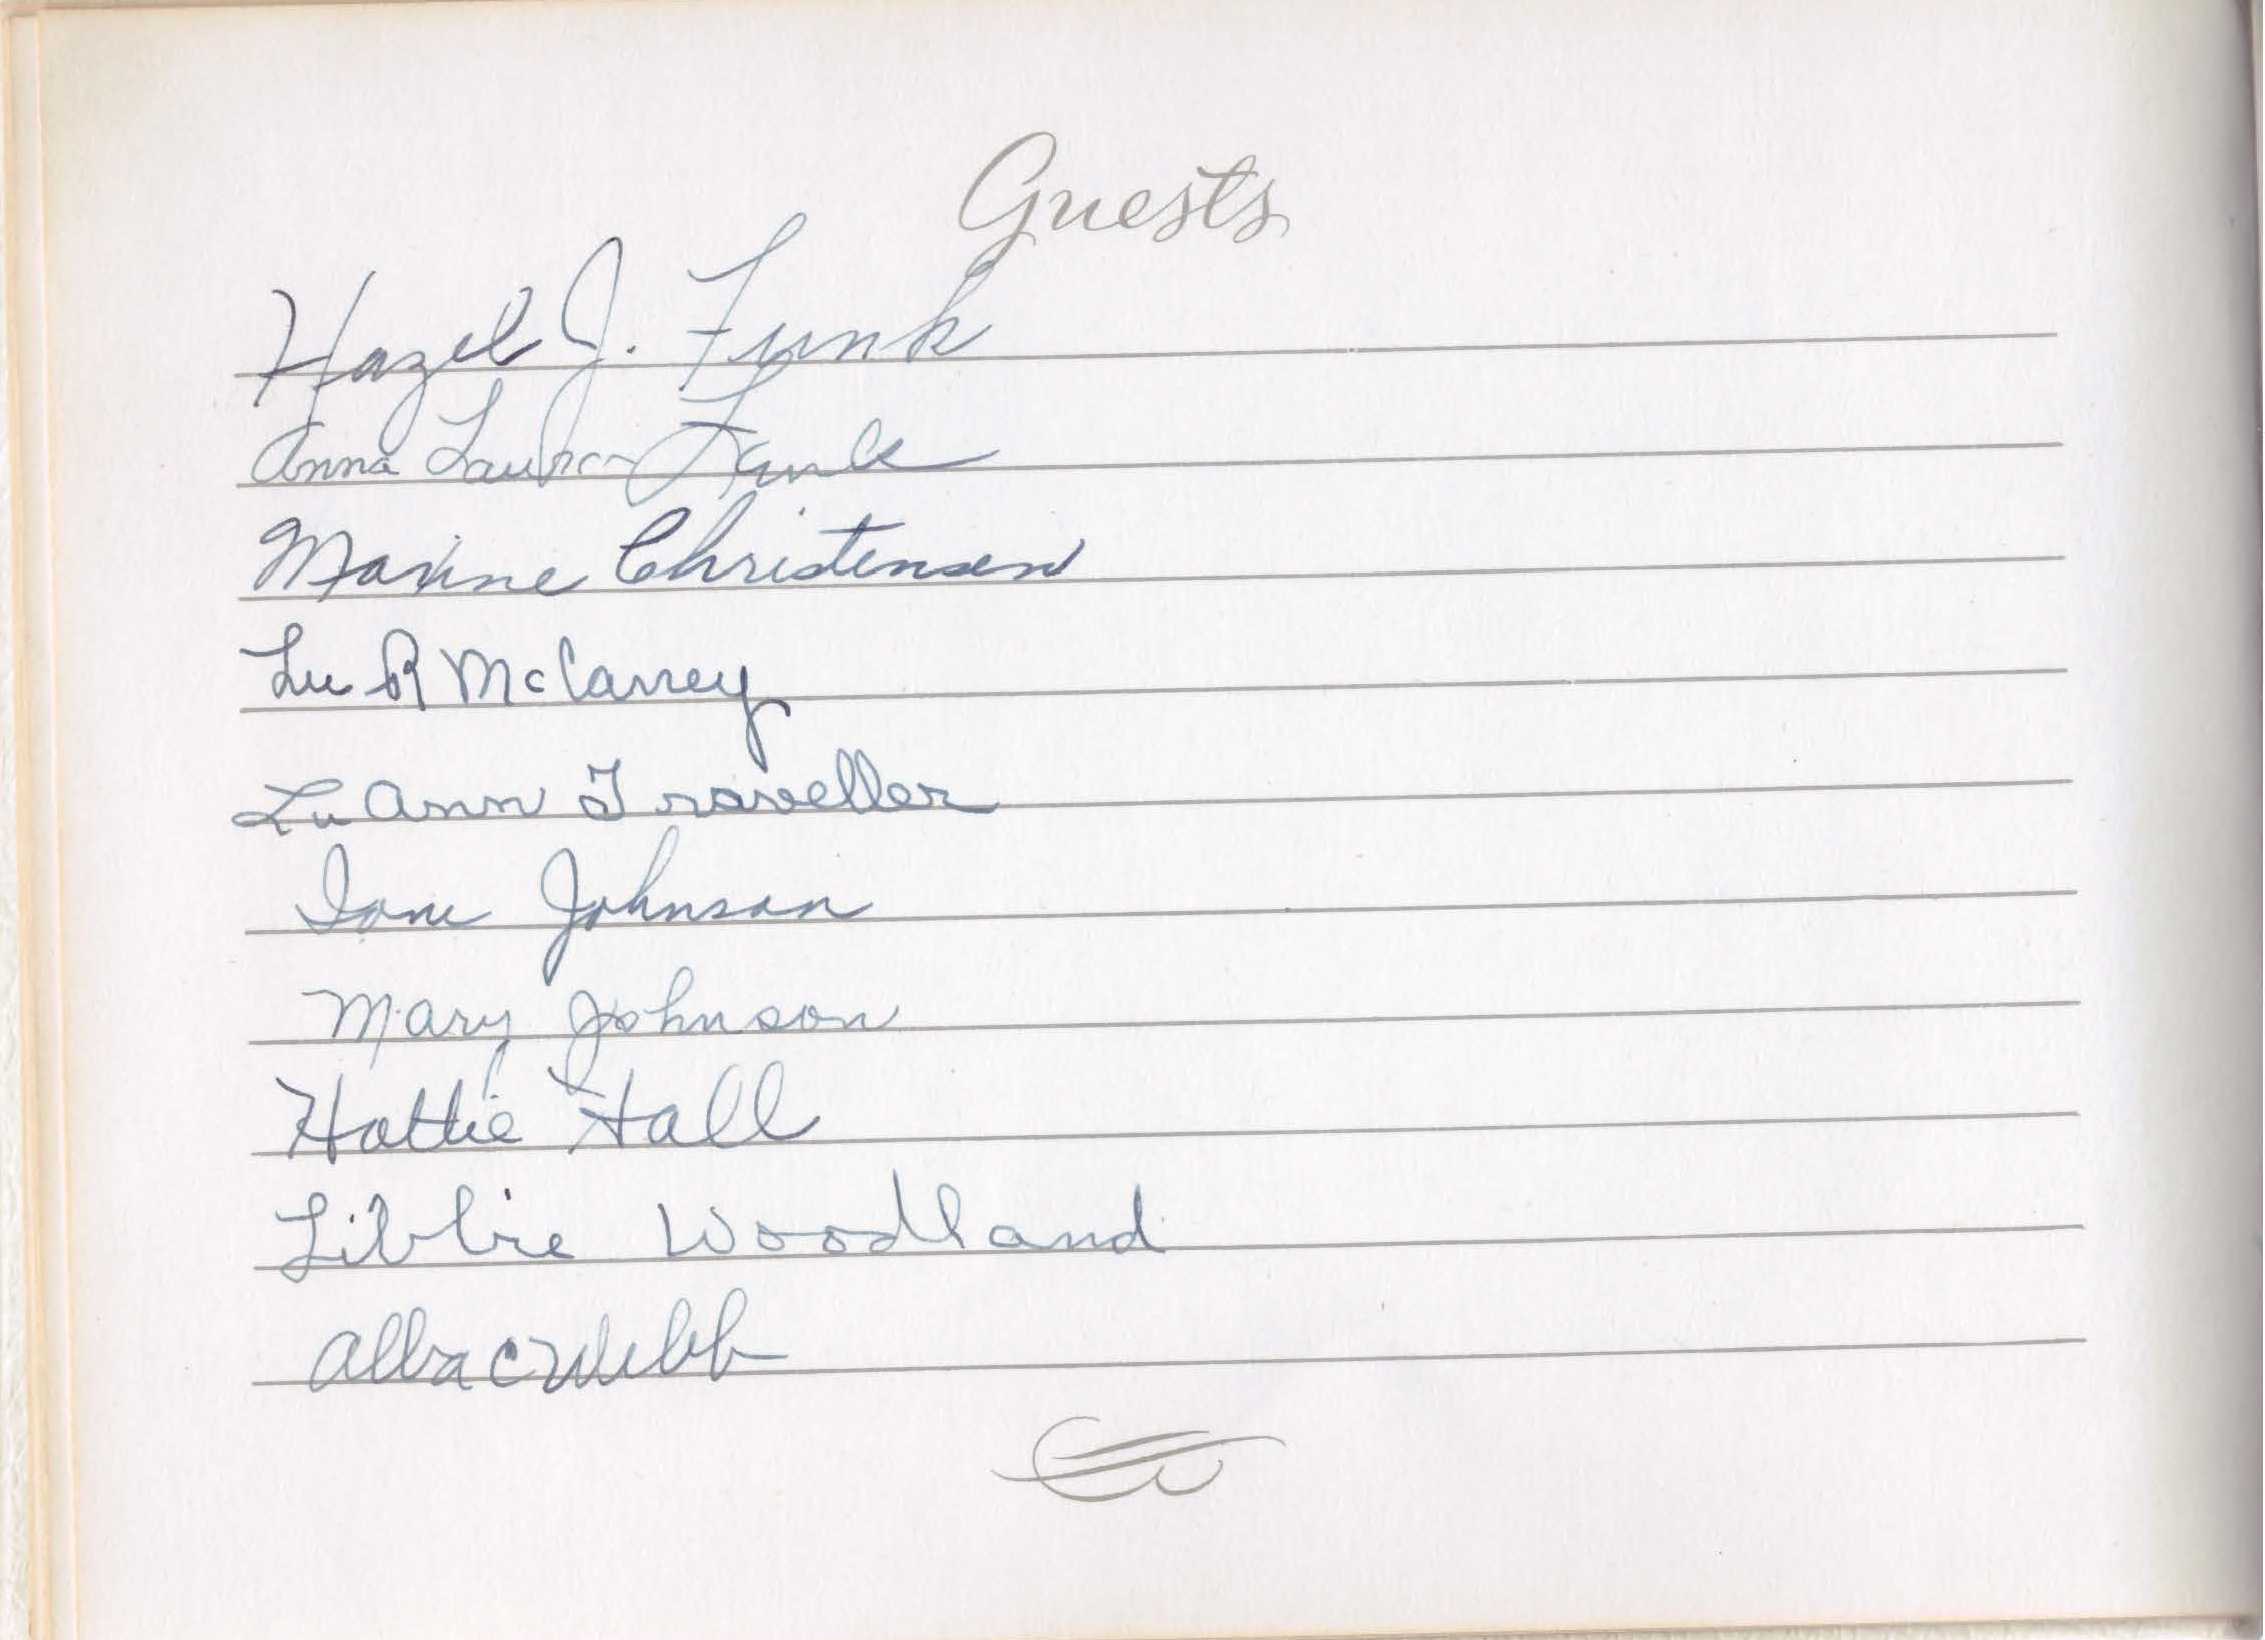 Guests
Hazel J. Funk
Anna Laura Funk
Maxine Christensen
Lu R McCarrey
LuAnn Traveller
Ione Johnson
Mary Johnson
Hattie Hall
Libbie Woodland
Alba C Webb